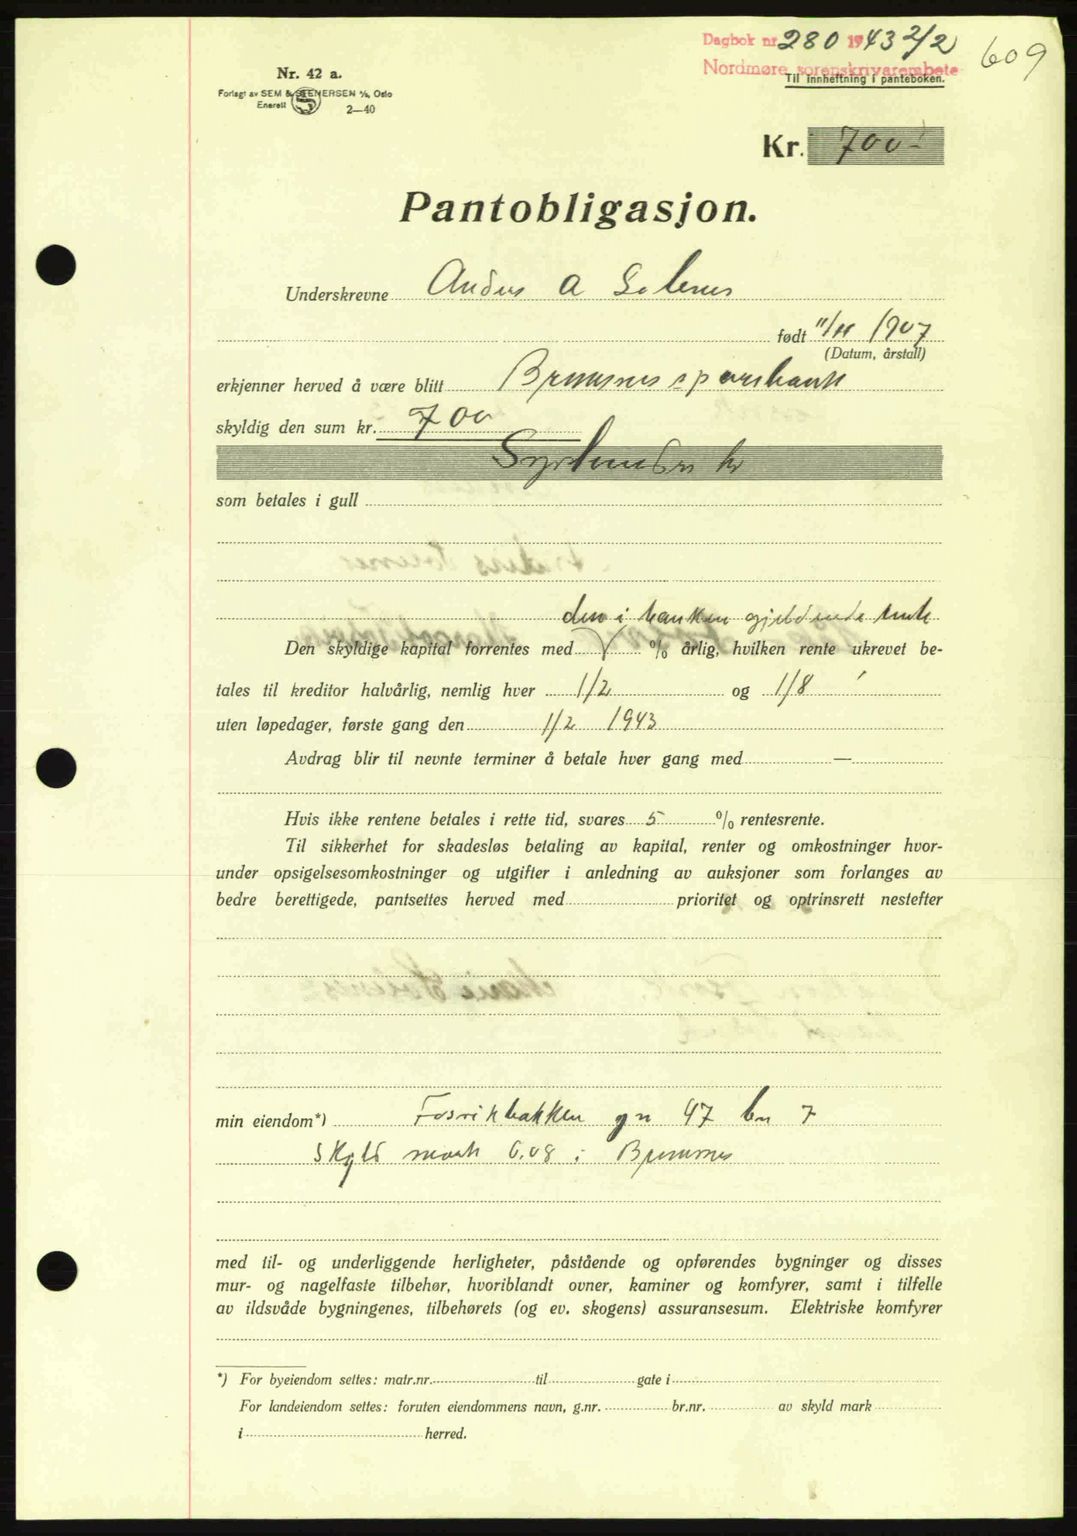 Dagbok nr. 280 1943 2/2
609
Nordmøre sorenskriverembete
Til innheftning i panteboken.
Nr. 42 a.
Forlagt av SEM & STENERSEN A/S, Oslo
Enerett
2—40
Kr. 700.-
Pantobligasjon.
Underskrevne Anders A
født 11/11 1907
(Datum, årstall)
erkjenner herved å være blitt Bremsnes sparebank
skyldig den sum kr. 700
Syvhundre kr
som betales i gull
den i banken gjeldende rente
Den skyldige kapital forrentes med % årlig, hvilken rente ukrevet be-
tales til kreditor halvårlig, nemlig hver 1/2 og 1/8
uten løpedager, første gang den 1/2 1943
Avdrag blir til nevnte terminer å betale hver gang med —
Hvis ikke rentene betales i rette tid, svares 5 % rentesrente.
Til sikkerhet for skadesløs betaling av kapital, renter og omkostninger hvor-
under opsigelsesomkostninger og utgifter i anledning av auksjoner som forlanges av
bedre berettigede, pantsettes herved med prioritet og optrinsrett nestefter
min eiendom*) Fosvikbakken gn 47 bn 7
Skyld mark 0.08 i Bremsnes
med til- og underliggende herligheter, påstående og opførendes bygninger og disses
mur- og nagelfaste tilbehør, hvoriblandt ovner, kaminer og komfyrer, samt i tilfelle
av ildsvåde bygningenes, tilbehørets (og ev. skogens) assuransesum. Elektriske komfyrer
*) For byeiendom settes: matr.nr. til gate i
For landeiendom settes: foruten eiendommens navn, g.nr. br.nr. av skyld mark
i herred.